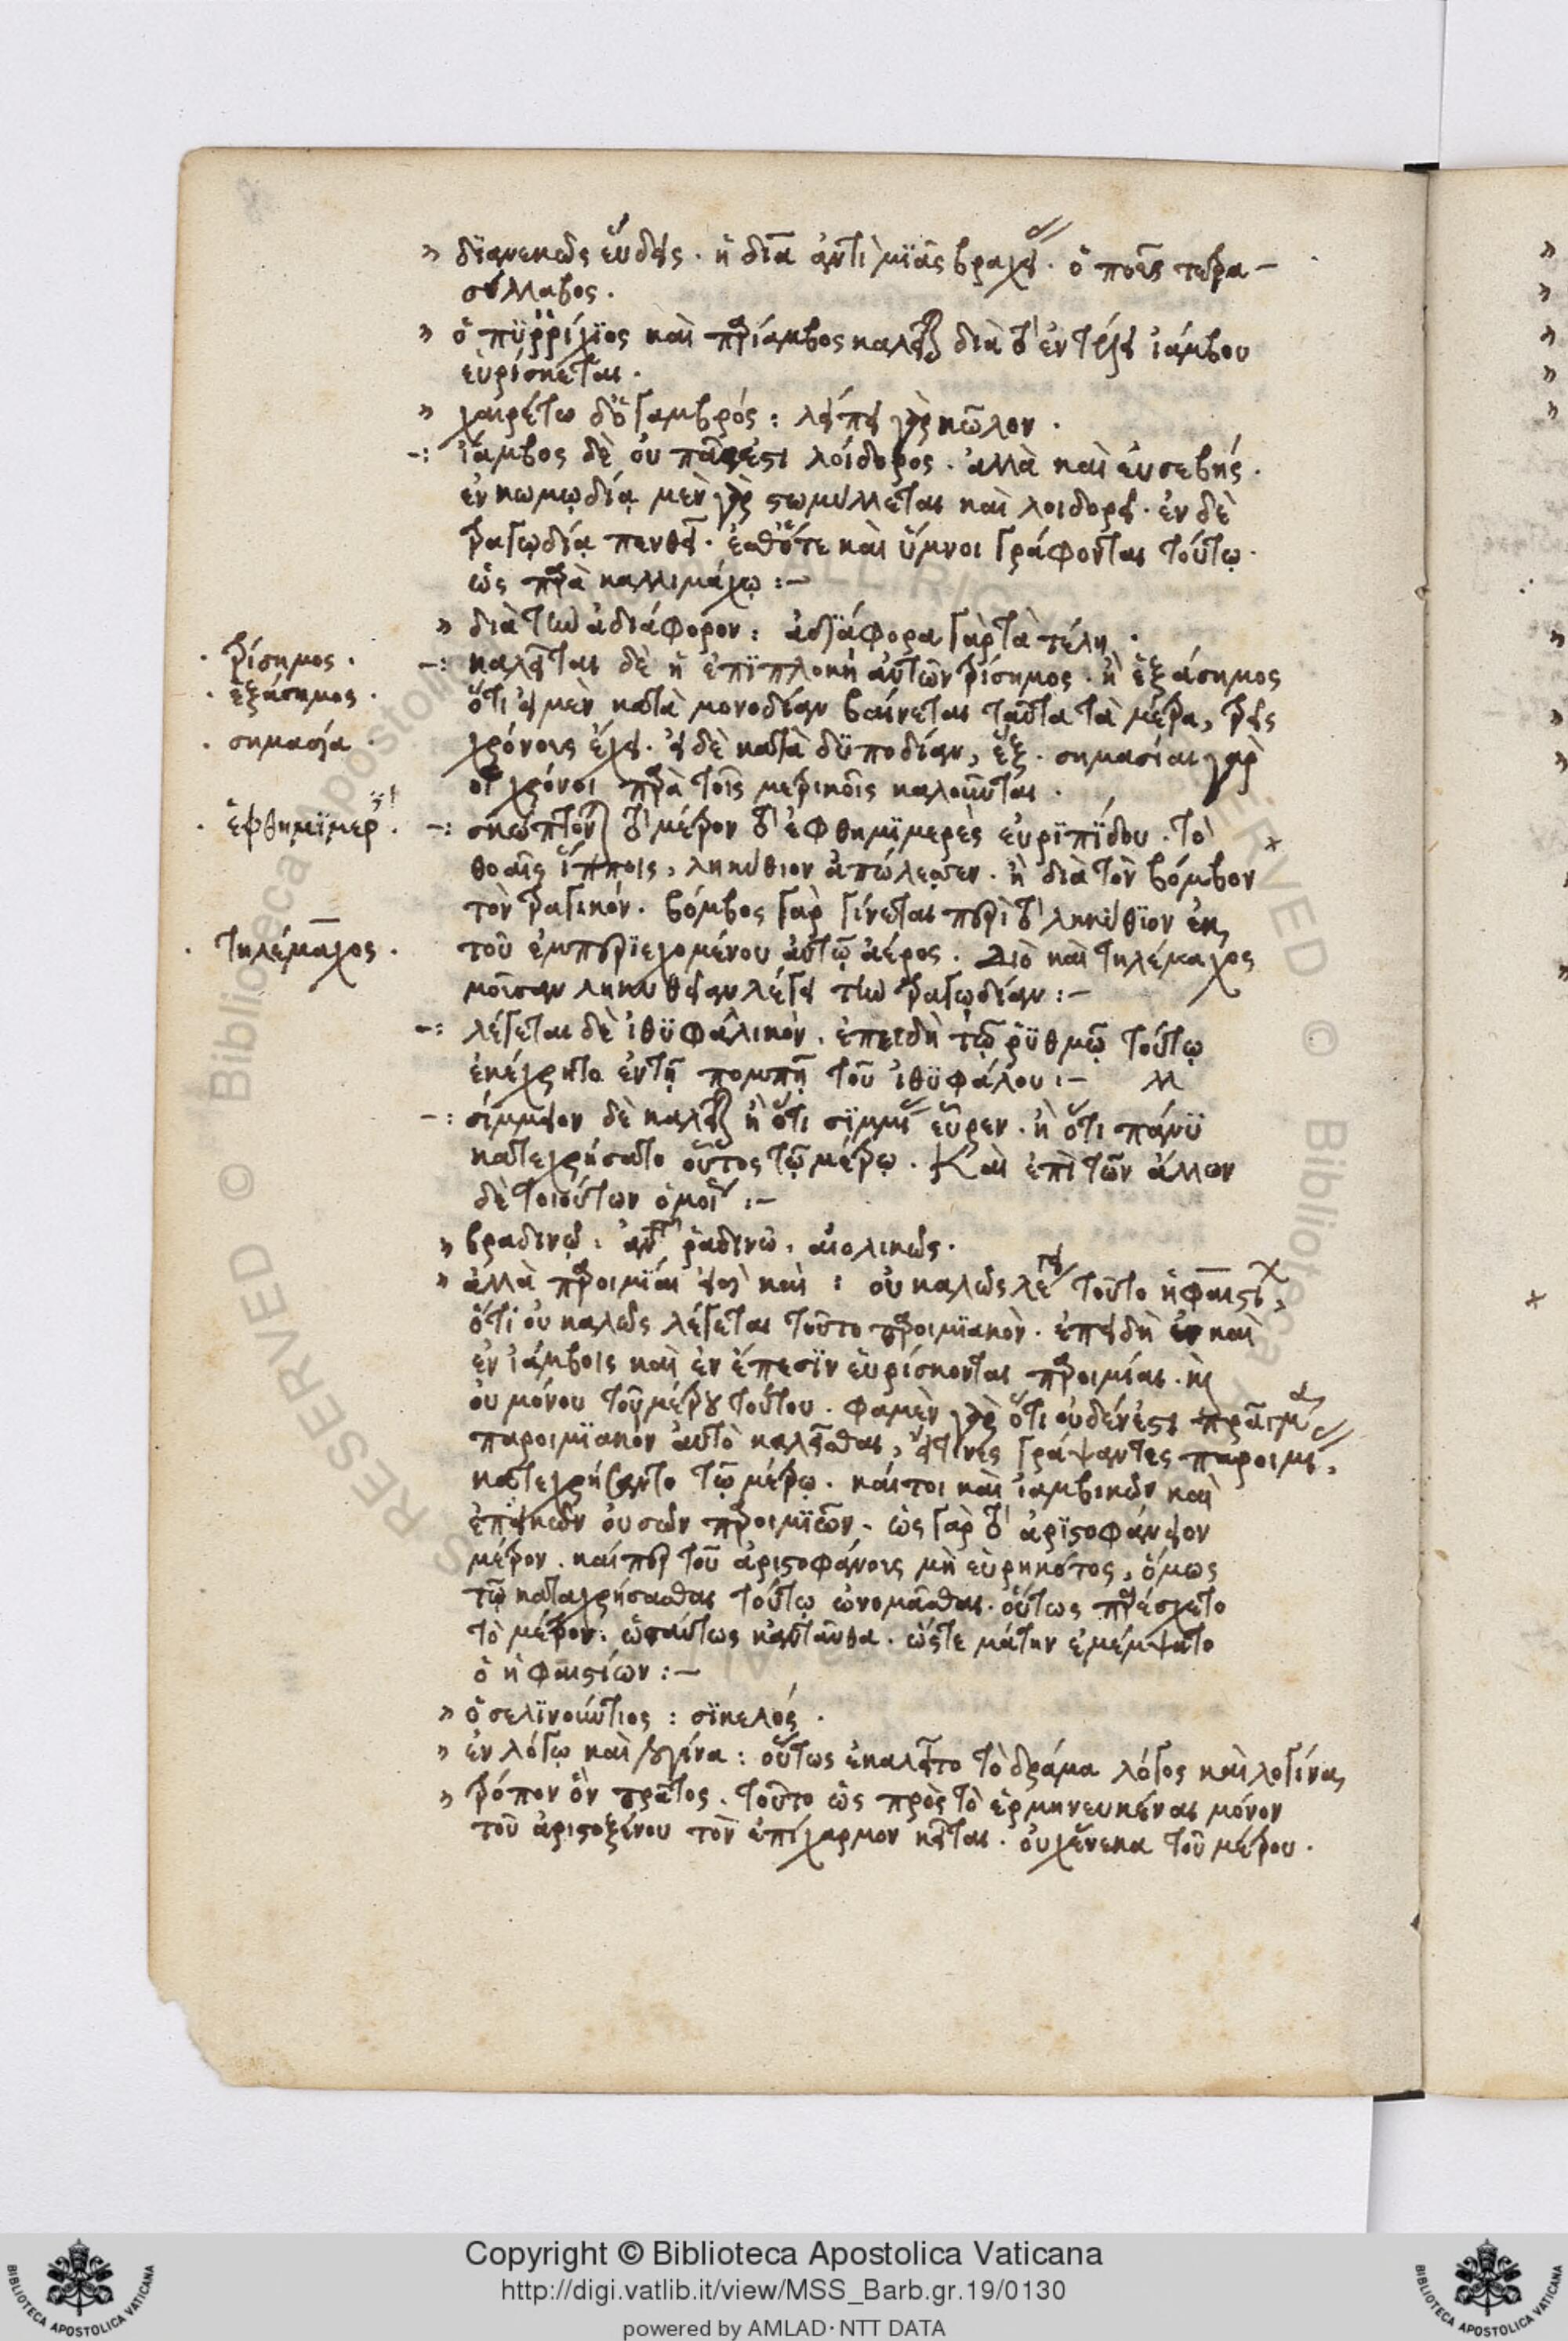 » διηνεκῶς εὕδεις· ἡ δία ἀντὶ μϊᾶς βραχεί· ὁ ποῦς τετρα-
σύλλαβος.
» ὁ πϋρρίχϊος καὶ παρίαμβος καλεῖται διὰ τὸ ἐν τρίτῳ ἰάμβου
εὑρίσκεται.
» χαιρέτω ὁ γαμβρός: λείπει γὰρ κῶλον.
-: ἴαμβος δὲ οὐ πᾶς ἐστι λοίδορος. ἀλλὰ καὶ εὐσεβής.
ἐν κωμῳδίᾳ μὲν γὰρ στωμύλλεται καὶ λοιδορεῖ. ἐν δὲ
τραγῳδίᾳ πενθεῖ. ἔσθ' ὅτε καὶ ὕμνοι γράφονται τούτῳ.
ὡς παρὰ καλλιμάχῳ :-
» διὰ τὴν ἀδιάφορον: ἀδϊάφορα γὰρ τὰ τέλη.
· τρίσημος ·
-: καλεῖται δὲ ἡ ἐπϊπλοκὴ αὐτῶν τρίσημος. ἢ ἑξάσημος
· ἑξάσημος ·
ὅτι εἰ μὲν κατὰ μονοδίαν βαίνεται ταῦτα τὰ μέτρα, τρεῖς
· σημασία ·
χρόνους ἔχει. εἰ δὲ κατὰ δϋποδίαν, ἕξ. σημασίαι γὰρ
οἱ χρόνοι παρὰ τοῖς μετρικοῖς καλοῦνται.
· ἑφθημϊμερ ·
-: σκώπτον τὸ μέτρον τὸ ἑφθημϊμερὲς εὐρϊπΐδου. τὸ
θοαῖς ἵπποις, ληκύθιον ἀπώλεσεν. ἢ διὰ τὸν βόμβον
τὸν τραγικόν. βόμβος γὰρ γίνεται περὶ τὸ ληκύθϊον ἐκ
· τηλέμαχος ·
τοῦ ἐμπεριεχομένου αὐτῷ ἀέρος. Διὸ καὶ τηλέμαχος
μοῦσαν ληκυθείαν λέγει τὴν τραγῳδίαν :-
-: λέγεται δὲ ἰθϋφαλικὸν. ἐπειδὴ τῷ ῥϋθμῷ τούτῳ
ἐκέχρητο ἐν τῇ πομπῇ τοῦ ἰθϋφάλου :-
-: σίμμειον δὲ καλεῖται ἢ ὅτι σϊμμί εὗρεν. ἢ ὅτι πάνϋ
κατεχρήσατο οὗτος τῷ μέτρῳ. Καὶ ἐπὶ τῶν ἄλλων
δὲ τοιούτων ὁμοί :-
» βραδινῷ: ἀντὶ ῥαδινῷ. αἰολικῶς.
» ἀλλὰ παροιμϊαι εἰσὶ καὶ : οὐ καλῶς λέγει τοῦτο ἡφαιστ,
ὅτι οὐ καλῶς λέγεται τοῦτο παροιμϊακὸν. ἐπειδὴ καὶ
ἐν ἰάμβοις καὶ ἐν ἔπεσϊν εὑρίσκονται παροιμίαι. καὶ
οὐ μόνου τοῦ μέτρου τούτου. φαμὲν γὰρ ὅτι οὐδέν ἐστι
παροιμϊακὸν αὐτὸ καλεῖσθαι, εἴ τινες γράψαντες παροιμί,
κατεχρήσαντο τῷ μέτρῳ. καίτοι καὶ ἰαμβικῶν καὶ
ἐπϊκῶν οὐσῶν παροιμϊῶν. ὡς γὰρ τὸ ἀρϊστοφάνειον
μέτρον. καίπερ τοῦ ἀριστοφάνους μὴ εὑρηκότος, ὅμως
τῷ κατακεχρῆσθαι τούτῳ ὠνομάσθαι. οὕτως παρέσχετο
τὸ μέτρον. ὡσαύτως κἀνταῦθα. ὥστε μάτην ἐμέμψατο
ὁ ἡφαιστίων :-
» ὁ σελϊνούντιος : σϊκελός.
» ἐν λόγῳ καὶ λογίνα: οὕτως ἐκαλεῖτο τὸ δρᾶμα λόγος καὶ λογίνα,
» τρόπον ὃν πρᾶτος. τοῦτο ὡς πρὸς τὸ ἑρμηνευκέναι μόνον
τοῦ ἀριστοξένου τὸν ἐπίχαρμον κεῖται. οὐχ ἕνεκα τοῦ μέτρου.
Copyright © Biblioteca Apostolica Vaticana
http://digi.vatlib.it/view/MSS_Barb.gr.19/0130
powered by AMLAD·NTT DATA